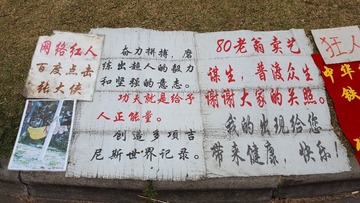 网络红人
百度点击
张大侠
奋力拼搏，磨
练出超人的毅力
和坚强的意志。
功夫就是给予
人正能量。
创造多项吉
尼斯世界记录。
80老翁卖艺
谋生，普渡众生
谢谢大家的关照。
我的出现给您
带来健康，快乐！
狂人
中华
铁